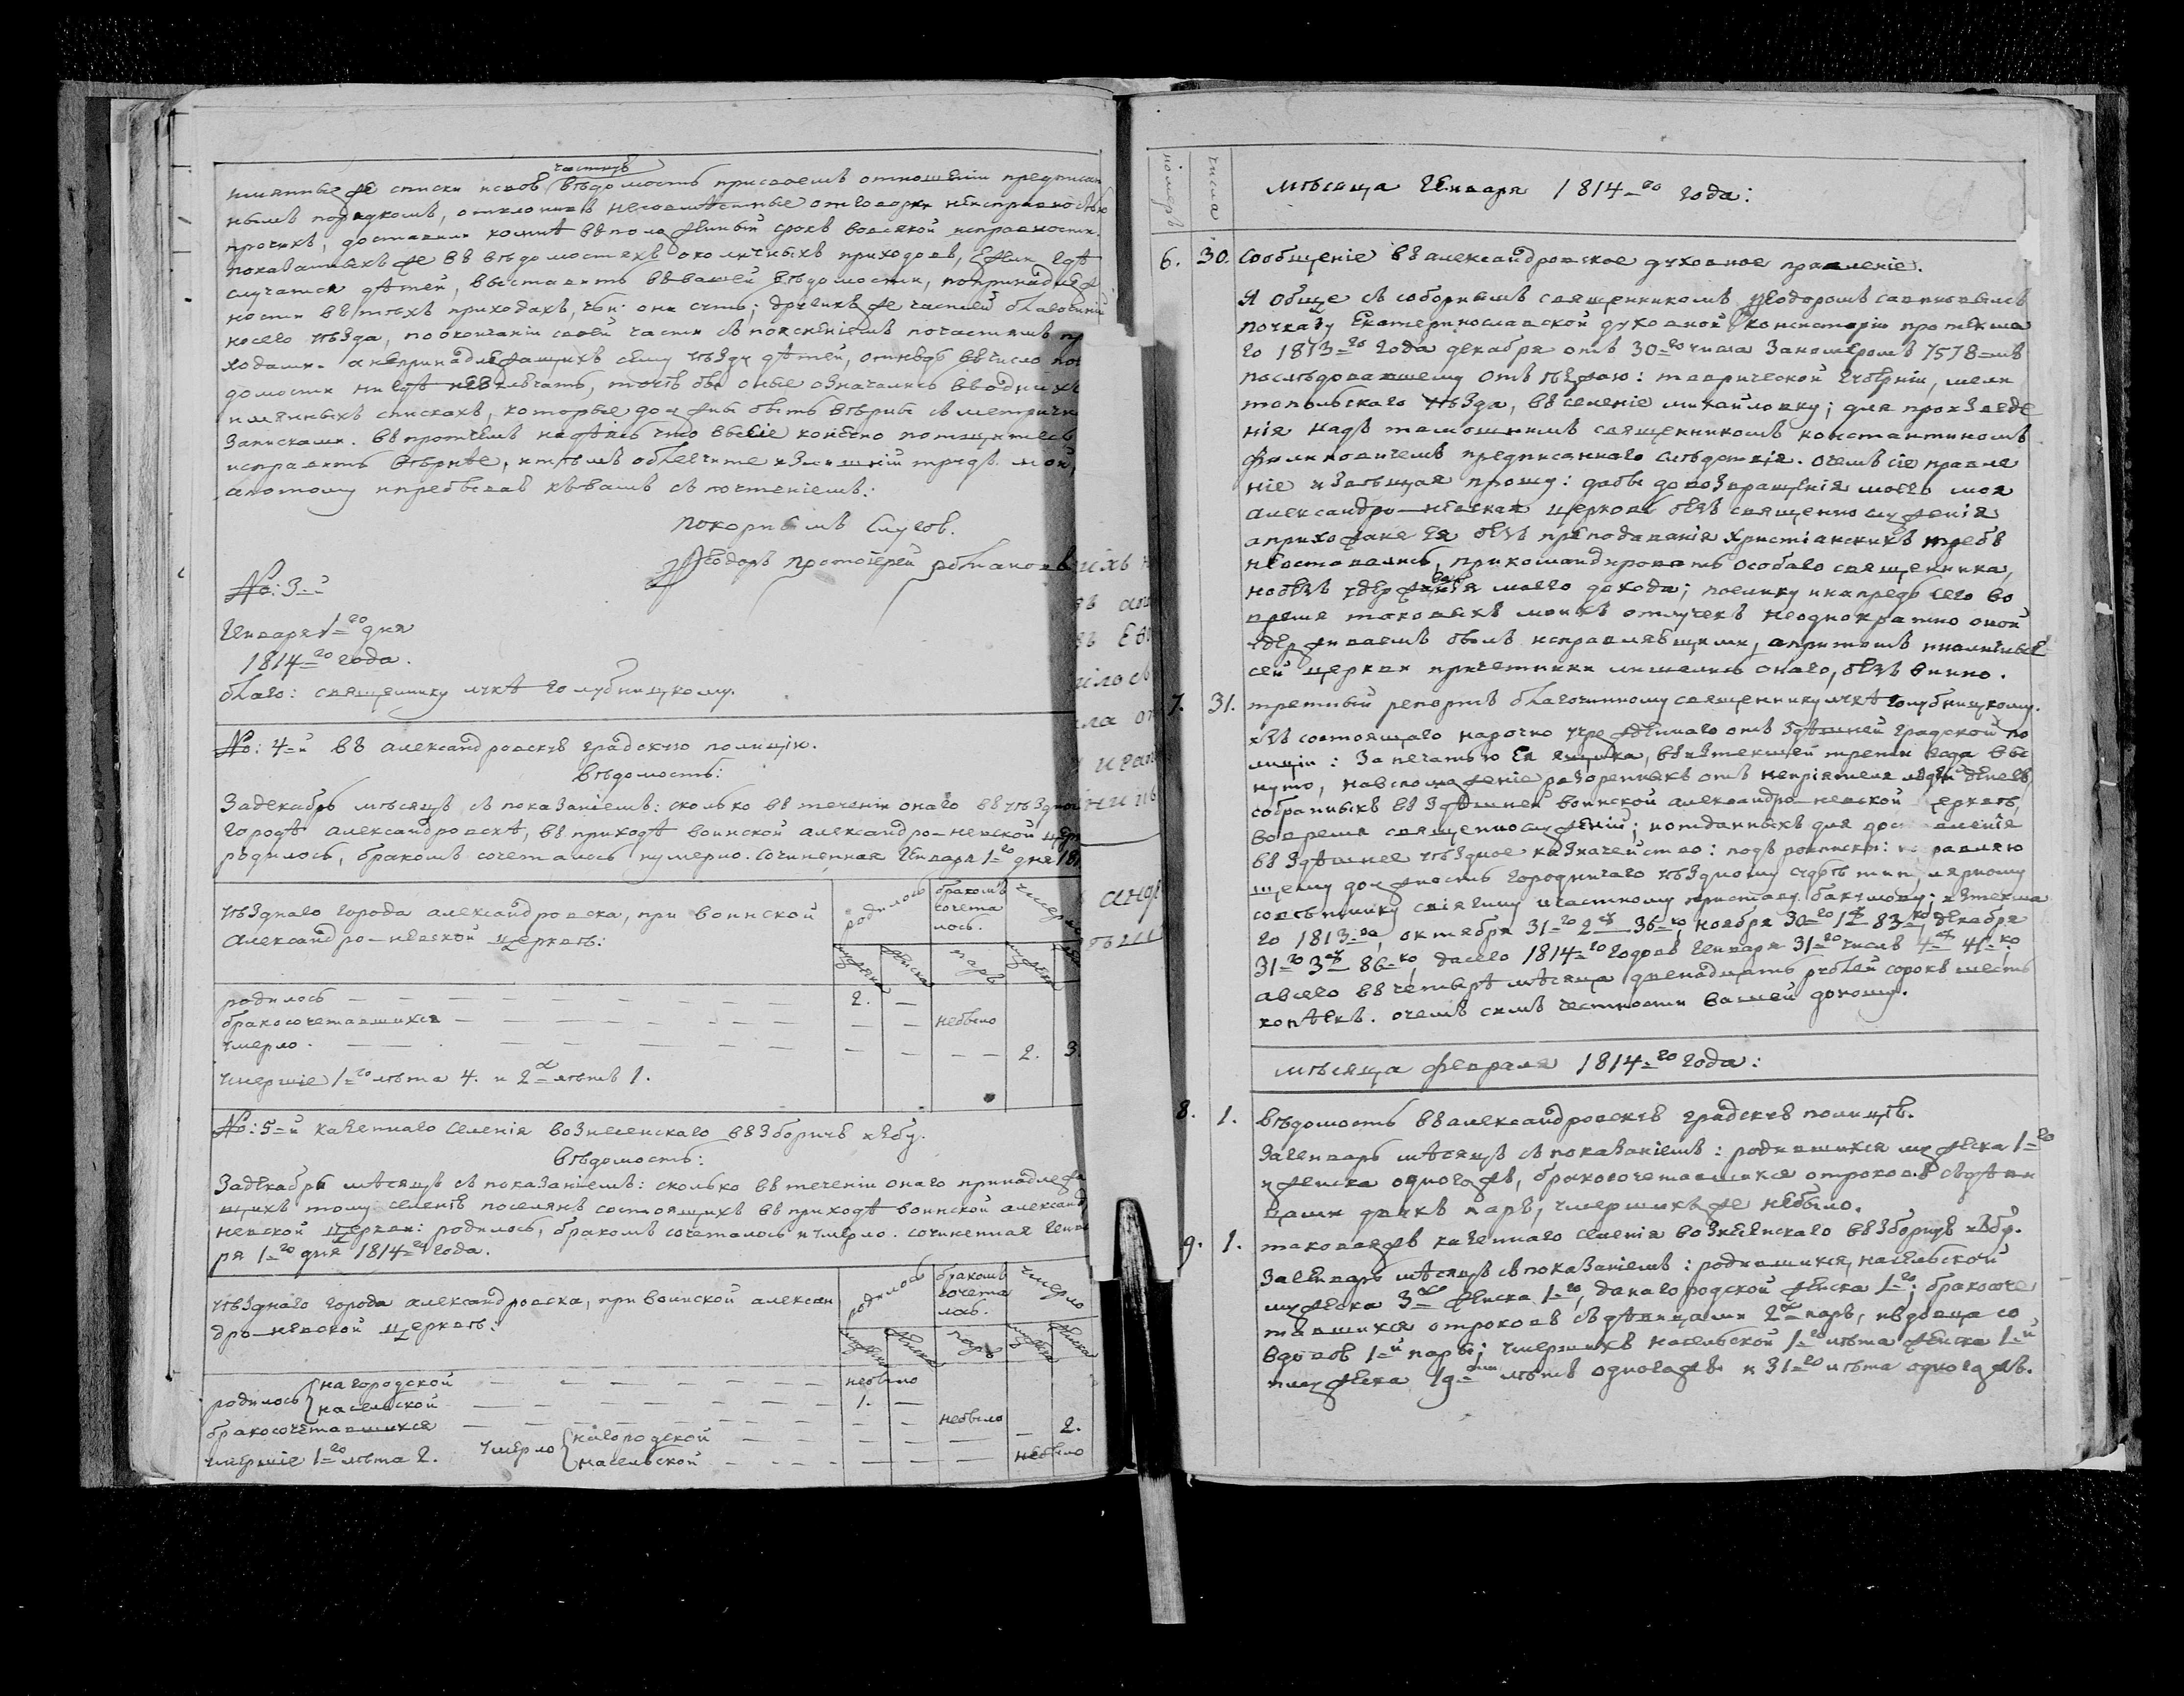 частную
имянные же списки и свою ведомость присвоемъ отношеніи предписан
нымъ порядкомъ, отклонивъ несовмѣстные отговорки неисправностью
прочихъ, доставили комнѣ вположенный срокъ вовсякой исправности.
показанныхъ же въ вѣдомостяхъ околичныхъ приходовъ, ежели гдѣ
случатся дѣтей, выставить ввашей вѣдомости, попринадлеж
ности въ тѣхъ приходахъ, чьи они суть; другихъ же частей благочиній
сего уѣзда, поокончаніи своей части съ поясненіемъ почастямъ пр
ходами. а непринадлежащихъ сему уѣзду дѣтей, отнюдь вчисло
домости нигдѣ не включать, точію бы оные означались вводнихъ
имянныхъ спискахъ, которые должны быть вѣрны съ метричес
записками. впротчемъ надѣясь что вы сіе конечно потщитесь
исправить вѣрнѣе, и тѣмъ облегчите излишній трудъ мой,
апотому и пребываю къ вамъ съ почтеніемъ:
покорнымъ слугою.
Ѳеодоръ протоіерей
№: 3-й
Генваря 1-го дня
1814-го года.
благо: священнику лукѣ голубницкому.
№: 4-й въ александровскую градскую полицію.
вѣдомость:
Задекабрь мѣсяцъ, съ показаніемъ: сколько въ теченіи онаго въ уѣздном
городѣ александровскѣ, въ приходѣ воинской александро-невской цер
родилось, бракомъ сочеталось и умерло. сочиненная Генваря 1-го дня 181
уѣзднаго города александровска, при воинской
александро-невской церквѣ:
родилось
бракомъ
сочета
лось.
умерло
мужеска
женска
паръ
мужеска
родилось — — — — — — — 2. —
бракосочетавшихся — — — — — — — — небыло
умерло. — — — — — — — — — 2. 3.
умершіе 1-го лѣта 4. и 2-хъ лѣтъ 1.
№: 5-й казеннаго селенія вознесенскаго въ зборную избу.
вѣдомость:
Задекабрь мѣсяцъ съ показаніемъ: сколько въ теченіи онаго принадлежа
щихъ тому селенію поселянъ состоящихъ въ приходѣ воинской александ
невской церкви: родилось, бракомъ сочеталось и умерло. сочиненная Генв
ря 1-го дня 1814-го года.
уѣзднаго города александровска, при воинской алексан
дро-невской церквѣ:
родилось
бракомъ
сочета
лось.
умерло
мужеска
женска
паръ
мужеска
женска
родилось { на городской — — — — — небыло
насельской — — — — — 1. —
бракосочетавшихся — — — — — — небыло
умершіе 1-го лѣта 2. умерло { нагородской — — — — — — 2.
насельской — — — — — — небыло
номеръ
числа
мѣсяца Генваря 1814-го года:
6. 30. Сообщеніе въ александровское духовное правленіе.
я обще съ соборнымъ священникомъ Ѳеодоромъ
поуказу Екатеринославской духовной консисторіи протекша
го 1813-го года декабря отъ 30-го числа заномеромъ 7578-мъ
послѣдовавшему отъѣзжаю: таврической губерніи, мели
топольскаго уѣзда, въ селеніе михайловку; для произведе
нія надъ тамошнимъ священникомъ константиномъ
филиповичемъ предписаннаго слѣдствія. очемъ сіе правле
ніе извѣщая прошу: дабы до возвращенія моего моя
александро-невская церковь безъ священнослуженія
а прихожане ея безъ преподаванія христіанскихъ требъ
неоставались, прикомандировать особаго священника,
но безъ удержанія моего дохода; поелику и напредъ сего во
время таковыхъ моихъ отлучекъ неоднократно оной
удерживаемъ былъ исправлявшими, апритомъ
сей церкви причетники лишались онаго, безъ винно.
7. 31. третный репортъ благочинному священнику лукѣ голубницкому.
изъ состоящаго нарочно учрежденнаго отъ здѣшней градской по
лиціи: запечатью ея ящика, въ истекшей трети года вы
нуто, навспоможеніе разоренныхъ отъ непріятеля людей денегъ,
собранныхъ въ здѣшней воинской александро-невской церквѣ,
вовремя священнослуженій; и отданныхъ для доставленія
въ здѣшнее уѣздное казначейство: подъ росписки: исправляю
щему должность городничаго уѣздному судьѣ титулярному
совѣтнику и частному приставу бакумову; истекша
го 1813-го, октября 31-го 2-ру 36-ко, ноября 30-го 1-ру 83-ко, декабря
31-го 3-ру 86-ко, да сего 1814-го годовъ Генваря 31-го числъ 4-ру 41-ко.
авсего въ четырѣ мѣсяца двенадцать рублей сорокъ шесть
копѣекъ. очемъ симъ честности вашей доношу.
мѣсяца февраля 1814-го года:
8. 1. вѣдомость въ александровскую градскую полицію.
Загенварь мѣсяцъ съ показаніемъ: родившихся мужеска 1-го
и женска одногожъ, бракосочетавшихся отроковъ съ дѣви
цами двухъ паръ, умершихъ же небыло.
9. 1. таковаяжъ казеннаго селенія вознесенскаго въ зборную избу.
Загенварь мѣсяцъ съ показаніемъ: родившихся, насельской
мужеска 3-хъ женска 1-го, данагородской женска 1-го; бракосоче
тавшихся отроковъ съ дѣвицами 2-хъ паръ, ивдовца со
вдовою 1-й пары; умершихъ насельской 1-го лѣта женска 1-й
имужеска 19-ти лѣтъ одногожъ и 31-го лѣта одногожъ.